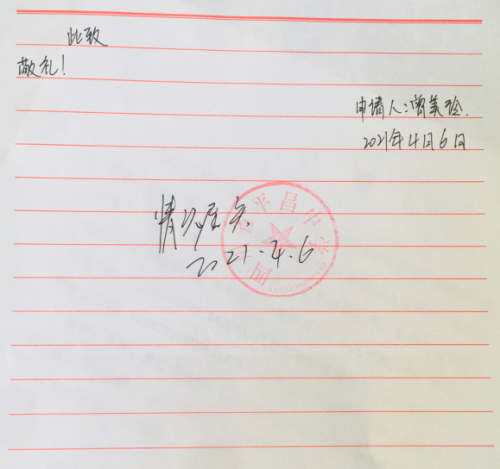 此致
敬礼!
申请人:曾美玲.
2021年4月6日
情况属实
2021.4.6
平昌中学